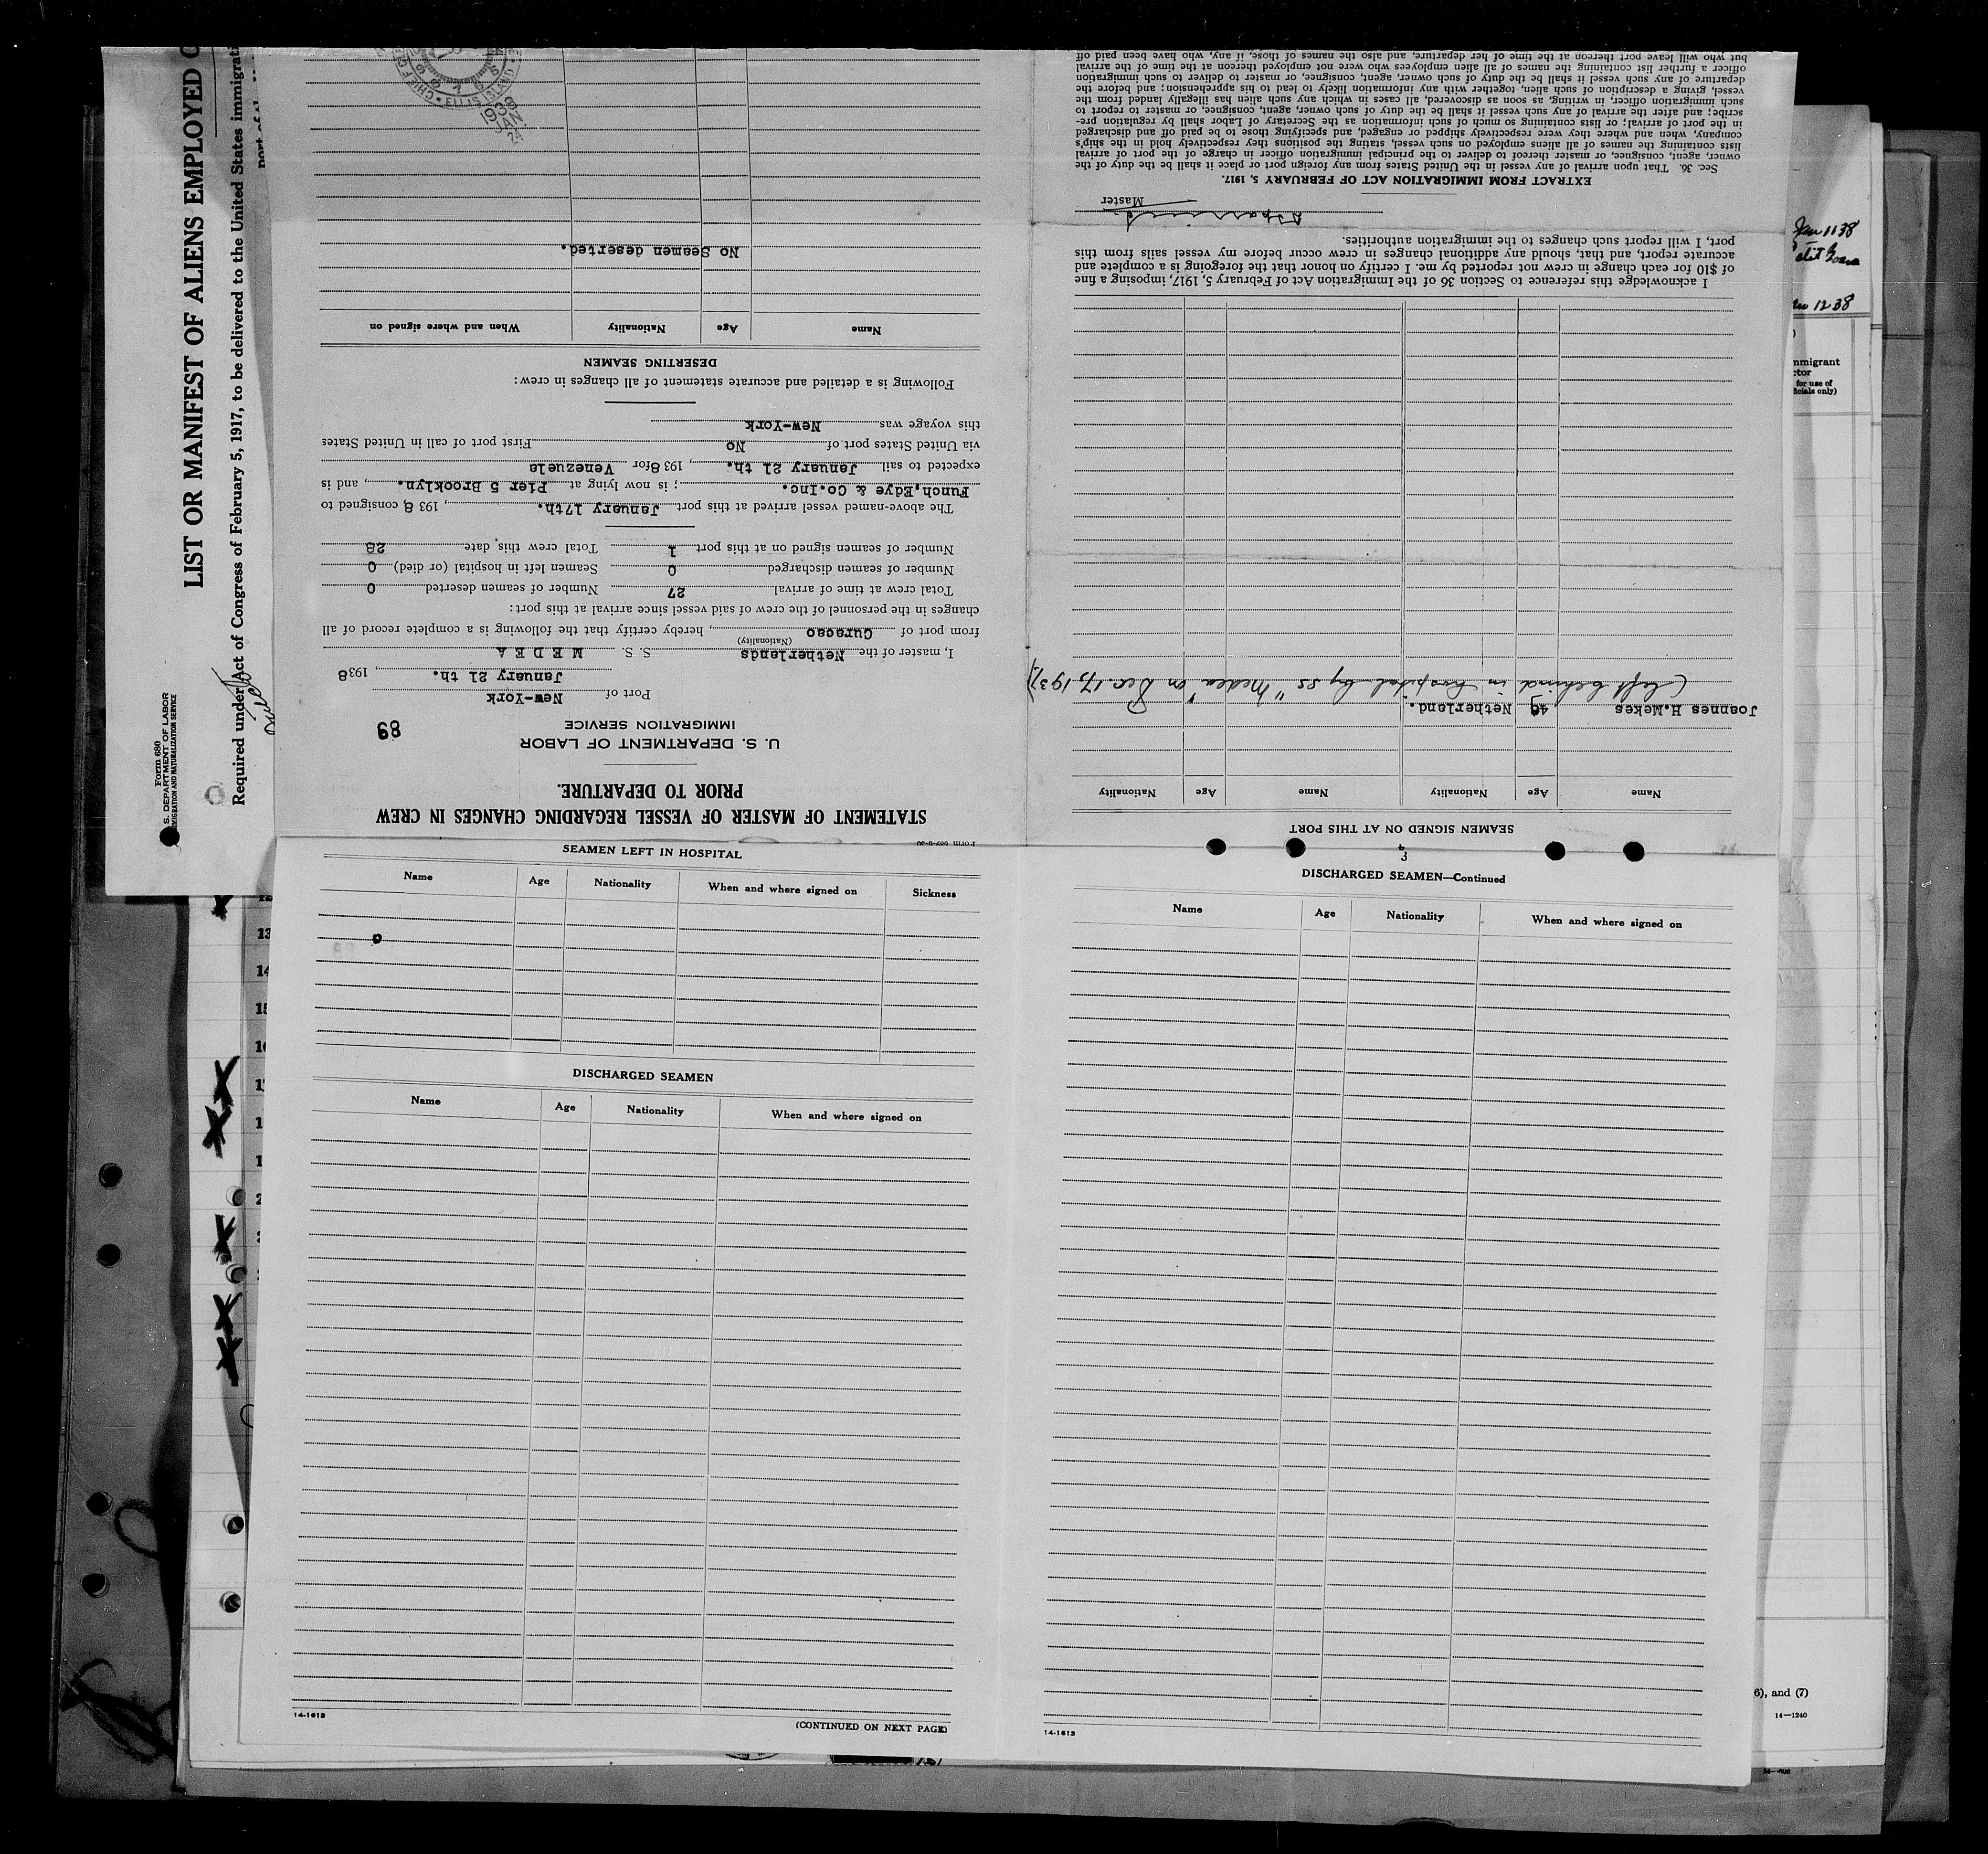 Form 680
S. DEPARTMENT OF LABOR
IMMIGRATION AND NATURALIZATION SERVICE
LIST OR MANIFEST OF ALIENS EMPLOYED
Required under Act of Congress of February 5, 1917, to be delivered to the United States immigrati
STATEMENT OF MASTER OF VESSEL REGARDING CHANGES IN CREW
PRIOR TO DEPARTURE.
U. S. DEPARTMENT OF LABOR
IMMIGRATION SERVICE
89
Port of New-York
January 21 th., 1938
I, master of the Netherlands S. S. MEDEA
(Nationality)
from port of Curacao, hereby certify that the following is a complete record of all
changes in the personnel of the crew of said vessel since arrival at this port:
Total crew at time of arrival 27 Number of seamen deserted 0
Number of seamen discharged 0 Seamen left in hospital (or died) 0
Number of seamen signed on at this port 1 Total crew this date 28
The above-named vessel arrived at this port January 17th., 1938, consigned to
Funch,Edye & Co.Inc.; is now lying at Pier 5 Brooklyn., and is
expected to sail January 21 th., 1938 for Venezuela
via United States port of No First port of call in United States
this voyage was New-York
Following is a detailed and accurate statement of all changes in crew:
DESERTING SEAMEN
Name Age Nationality When and where signed on
No Seamen deserted.
ELLIS ISLAND
1938 JAN 24
SEAMEN SIGNED ON AT THIS PORT
Name Age Nationality Name Age Nationality
Joannes H.Mekes 49 Netherland.
(left behind in hospital by ss "Medea" on Dec. 17, 1937)
I acknowledge this reference to Section 36 of the Immigration Act of February 5, 1917, imposing a fine
of $10 for each change in crew not reported by me. I certify on honor that the foregoing is a complete and
accurate report and that, should any additional changes in crew occur before my vessel sails from this
port, I will report such changes to the immigration authorities.
Master
EXTRACT FROM IMMIGRATION ACT OF FEBRUARY 5, 1917.
Sec. 36. That upon arrival of any vessel in the United States from any foreign port or place it shall be the duty of the
owner, agent, consignee, or master thereof to deliver to the principal immigration officer in charge of the port of arrival
lists containing the names of all aliens employed on such vessel, stating the positions they respectively hold in the ship's
company, when and where they were respectively shipped or engaged, and specifying those to be paid off and discharged
in the port of arrival; or lists containing so much of such information as the Secretary of Labor shall by regulation pre-
scribe; and after the arrival of any such vessel it shall be the duty of such owner, agent, consignee, or master to report to
such immigration officer, in writing, as soon as discovered, all cases in which any such alien has illegally landed from the
vessel, giving a description of such alien, together with any information likely to lead to his apprehension; and before the
departure of any such vessel it shall be the duty of such owner, agent, consignee, or master to deliver to such immigration
officer a further list containing the names of all alien employees who were not employed thereon at the time of the arrival
but who will leave port thereon at the time of her departure, and also the names of those, if any, who have been paid off
SEAMEN LEFT IN HOSPITAL
Name Age Nationality When and where signed on Sickness
0
DISCHARGED SEAMEN
Name Age Nationality When and where signed on
14-1613
(CONTINUED ON NEXT PAGE)
3
DISCHARGED SEAMEN—Continued
Name Age Nationality When and where signed on
14-1613
Jan 11 38
12 38
mmigrant
ctor
for use of
ficials only)
13
14
15
6), and (7)
14—1240